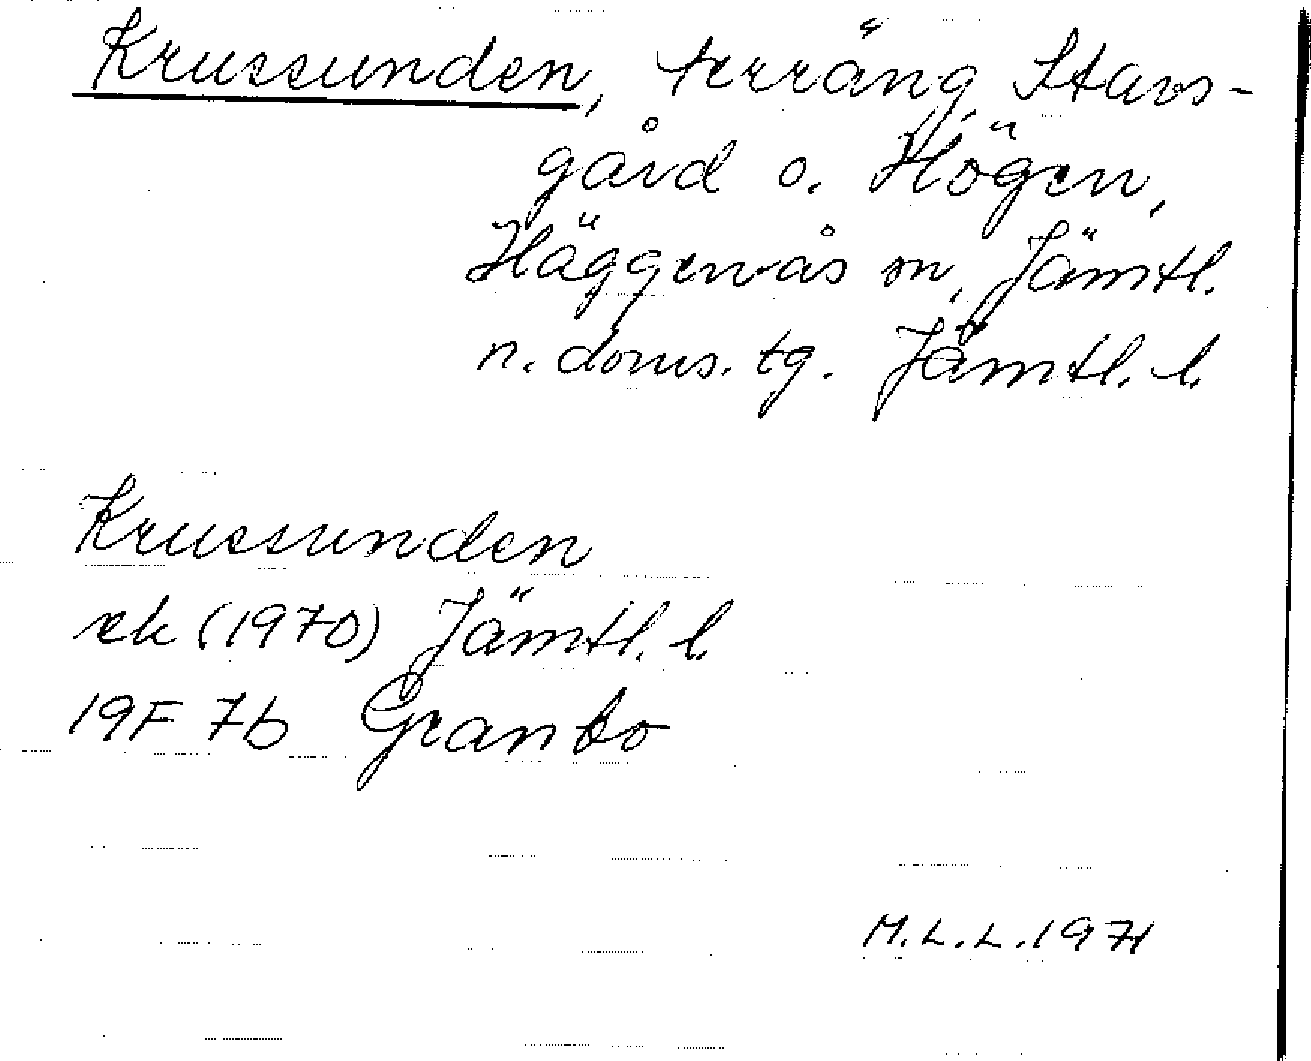 Krussunden, terräng, Stavs-
gård o. Högen,
Häggenås sn, Jämtl.
n. doms. tg. Jämtl. l.
Krussunden
ek (1970) Jämtl. l.
19F 7b Granbo
M.L.L. 1971